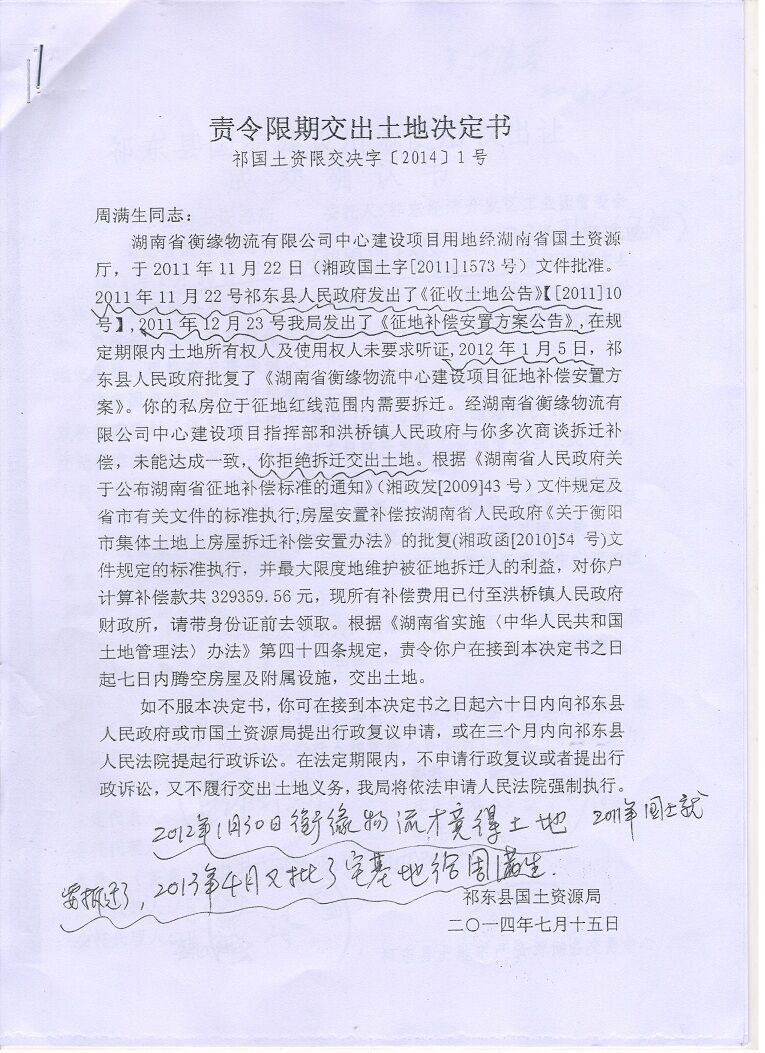 责令限期交出土地决定书
祁国土资限交决字〔2014〕1号
周满生同志：
湖南省衡缘物流有限公司中心建设项目用地经湖南省国土资源
厅，于2011年11月22日（湘政国土字[2011]1573号）文件批准。
2011年11月22号祁东县人民政府发出了《征收土地公告》【[2011]10
号】,2011年12月23号我局发出了《征地补偿安置方案公告》,在规
定期限内土地所有权人及使用权人未要求听证,2012年1月5日，祁
东县人民政府批复了《湖南省衡缘物流中心建设项目征地补偿安置方
案》。你的私房位于征地红线范围内需要拆迁。经湖南省衡缘物流有
限公司中心建设项目指挥部和洪桥镇人民政府与你多次商谈拆迁补
偿，未能达成一致，你拒绝拆迁交出土地。根据《湖南省人民政府关
于公布湖南省征地补偿标准的通知》（湘政发[2009]43号）文件规定及
省市有关文件的标准执行;房屋安置补偿按湖南省人民政府《关于衡阳
市集体土地上房屋拆迁补偿安置办法》的批复(湘政函[2010]54号)文
件规定的标准执行，并最大限度地维护被征地拆迁人的利益，对你户
计算补偿款共329359.56元，现所有补偿费用已付至洪桥镇人民政府
财政所，请带身份证前去领取。根据《湖南省实施〈中华人民共和国
土地管理法〉办法》第四十四条规定，责令你户在接到本决定书之日
起七日内腾空房屋及附属设施，交出土地。
如不服本决定书，你可在接到本决定书之日起六十日内向祁东县
人民政府或市国土资源局提出行政复议申请，或在三个月内向祁东县
人民法院提起行政诉讼。在法定期限内，不申请行政复议或者提出行
政诉讼，又不履行交出土地义务，我局将依法申请人民法院强制执行。
2012年1月30日衡缘物流才竞得土地 2011年国土就
要拆迁了，2013年4月又批了宅基地给周满生.
祁东县国土资源局
二〇一四年七月十五日